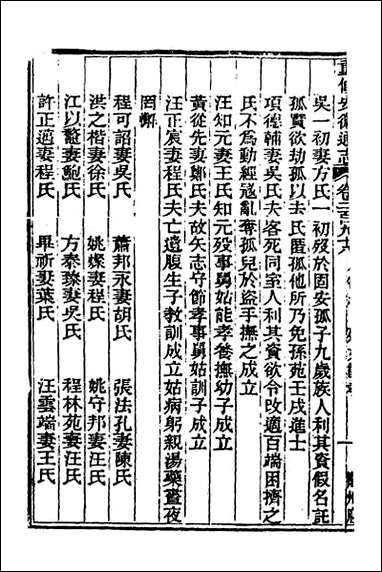 重修安徽通志 卷二百九十六
吳一初妻方氏一初歿於固安孤子九歲族人利其資假名託
孤實欲劫孤以去氏匿孤他所乃免孫苑壬戌進士
項德輔妻吳氏夫客死同室人利其資欲令改適百端困擠之
氏不為動經遘亂奪孤兒於盜手撫之成立
汪知元妻王氏知元歿事舅姑能孝養撫幼子成立
黃從先妻鄭氏夫故矢志守節孝事舅姑訓子成立
汪正宸妻程氏夫亡遺腹生子教訓成立姑病躬親湯藥晝夜
罔懈
程可詔妻吳氏 蕭邦永妻胡氏 張法孔妻陳氏
洪之楷妻徐氏 姚媒妻程氏 姚守邦妻汪氏
江以鼇妻鮑氏 方泰臻妻吳氏 程林苑妻汪氏
許正適妻程氏 畢祈妻葉氏 汪雲端妻王氏